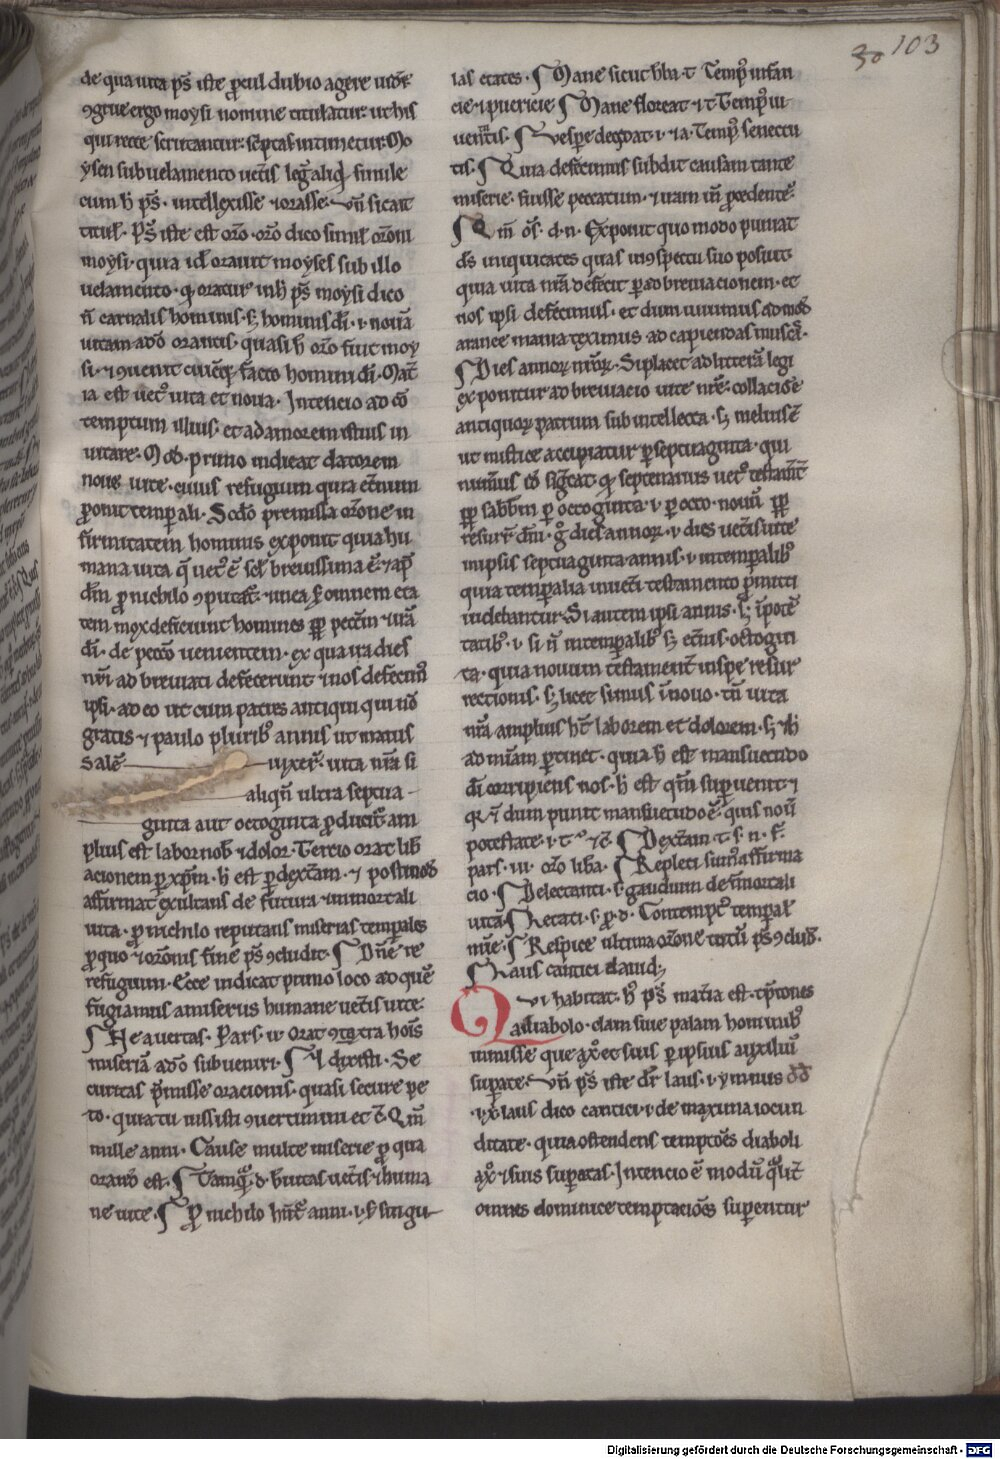 30 103
de qua uita ps̄ iste ꝓcul dubio agere uidet̄
ꝯgrue ergo moysi nomine titulatur. ut his
qui recte scrutantur. septas intimetur. Mo
ysen sub uelamento uet̄is leḡ aliqͥd simile
cum h̄ ps̄. intellexisse ⁊ orasse. Vn̄ sic ait
titul᷒. Ps̄ iste est or̄o. or̄o dico simil᷒ or̄oni
moysi. quia id orauit moyses sub illo
uelamento. qđ oratur᷒ in h̄ ps̄ moysi dico
n̄ carnalis hominis. s; hominis dī. ⁊ nouā
uitam a dō orantis. quasi h̄ or̄o fuit moy
si. ⁊ ꝯuenit cuicq; facto homini dī. Mat̄
ia est uet᷒ uita et noua. Intencio ad cō
temptum illius. et ad amorem istius in
uitare. Mod᷒. primo indicat datorem
noue uite. cuius refugium quia et̄num
p̄ponit temꝑali. Scdō premissa or̄one in
firmitatem hominis exponit quia hu
mana uita q̄ uet᷒ ē sc̄l breuissima ē. ⁊ ap᷒
dm̄ ꝓ nichilo ꝯputat᷒. ⁊ in ea ꝑ omnem eta
tem mox deficiunt homines ꝓp̄ pecc̄m ⁊ irā
dī. de pecc̄o uenientem. ex qua ira dies
nr̄i ad breuiati defecerunt ⁊ nos defecim᷒
ipsi. adeo ut cum patres antiqui qui nō
gratis ⁊ paulo plurib᷒ annis ut matus
salē uixer̄. uita nr̄a si
aliqn̄ ultra septua
ginta aut octoginta ꝓducit̄ am
plius est labor nob᷒ ⁊ dolor. Tercio orat lib̄
acionem ꝑ xp̄m. h̄ est ꝑ dextram. ⁊ postmod᷒
affirmat exultans de futura ⁊ inmortali
uita. ꝓ nichilo reputans miserias temporales
ꝓ quo ⁊ or̄onis fine ps̄ ꝯcludit. Dn̄e re
refugium. Ecce indicat primo loco ad quē
fugiamus a miseriis humane uet̄is uite.
Ne auertas. Pars. ii. Orat ꝯtra hois
miseriā a dō subueniri. Et dixisti. Se
curitas p̄misse oracionis. quasi secure pe
to. quia tu iussisti ꝯuertimini et c̄. Qm̄
mille anni. Cause multe miserie ꝓ qua
orand᷒ est. Tamq̄. d. breuitas uet̄is ⁊ huma
ne uite. Que ꝓ nichilo hn̄t̄ anni. ⁊ ꝑ singu
las etates. Mane sicut h̄ba. t. Temp᷒ infan
cie ⁊ puericie. Mane floreat. ⁊ t. Temp᷒ iu
uentis. Vespere decidat. ⁊ i a. Temp᷒ senectu
tis. Quia defecimus subdit causam tante
miserie. fuisse peccatum. ⁊ iram in᷒ p̄cedente.
Qm̄ oēs. d. n. Exponit quo modo puniat
ds̄ iniquitates quas in ꝯspectu suo posuit
quia uita nr̄a defecit ꝑ ad breuiacionem. et
nos ipsi defecimus. et dum uiuimus ad mod᷒
aranee inania teximus ad capiendas muscas.
Dies annoꝝ nr̄oꝝ. Si placet ad litterā legi
exponitur ad breuiacio uite nr̄e. collacione
antiquoꝝ patrum subintellecta. s; melius ē
ut mistice accipiatur ꝑ septuaginta. qui
num̄us id sig̅cat qđ septenarius uet᷒ testam̄t̄
ꝓp̄ sabb̄m ꝑ octoginta. ⁊ ꝑ octo. nouū ꝓp̄
resurr̄ dn̄i. ḡ dies annoꝝ. ⁊ dies uet̄is uite
in ipsis septuaginta annis. ⁊ in temꝑalib᷒
quia temꝑalia in uet̄i testamento ꝓmitti
uidebantur. Si autem ipsi annis. s; in pote
tatib᷒. ⁊ si n̄ in temꝑalib᷒ s; et̄nis. octogin
ta. quia nouum testament᷒ in spe resur
rectionis. s; licet simus i nouo. tn̄ uita
nr̄a amplius ht̄ laborem et dolorem. s; ⁊ h̄
ad miam ꝑtinet. quia h̄ est mansuetudo
dī corripiens nos. h̄ est qm̄ suꝑuenit ⁊
qr̄ ⁊ dum punit mansuetudo ē. Quis nou
potestate. i. t ⁊ c̄. Dextram. t. s. n. f.
pars. iii. or̄o liba. Repleti sum᷒ affirma
cio. Delectati. s. gaudium de inmortali
uita. Letati. s. ꝓ. d. Contemptꝰ temporal᷒
mīe. Respice ultima or̄one totū ps̄ ꝯclud᷒.
Laus cantici dauid;
Qvi habitat. h᷒ ps̄ mat̄ia est. tp̄tiones
a diabolo. clam siue palam hominib᷒
inmisse. que ax᷒ et suis ꝑ ipsius auxiliū
superate. Vn̄ ps̄ iste dr̄ laus. i. ymnus dd᷒
i. xp̄i. laus dico cantici. i. de maxima iocun
ditate. quia ostendens temptōes diaboli
a x᷒ ⁊ suis superatas. Intencio ē modū quo uit̄
omnes dominice temptaciōes superentur
Digitalisierung gefördert durch die Deutsche Forschungsgemeinschaft - DFG